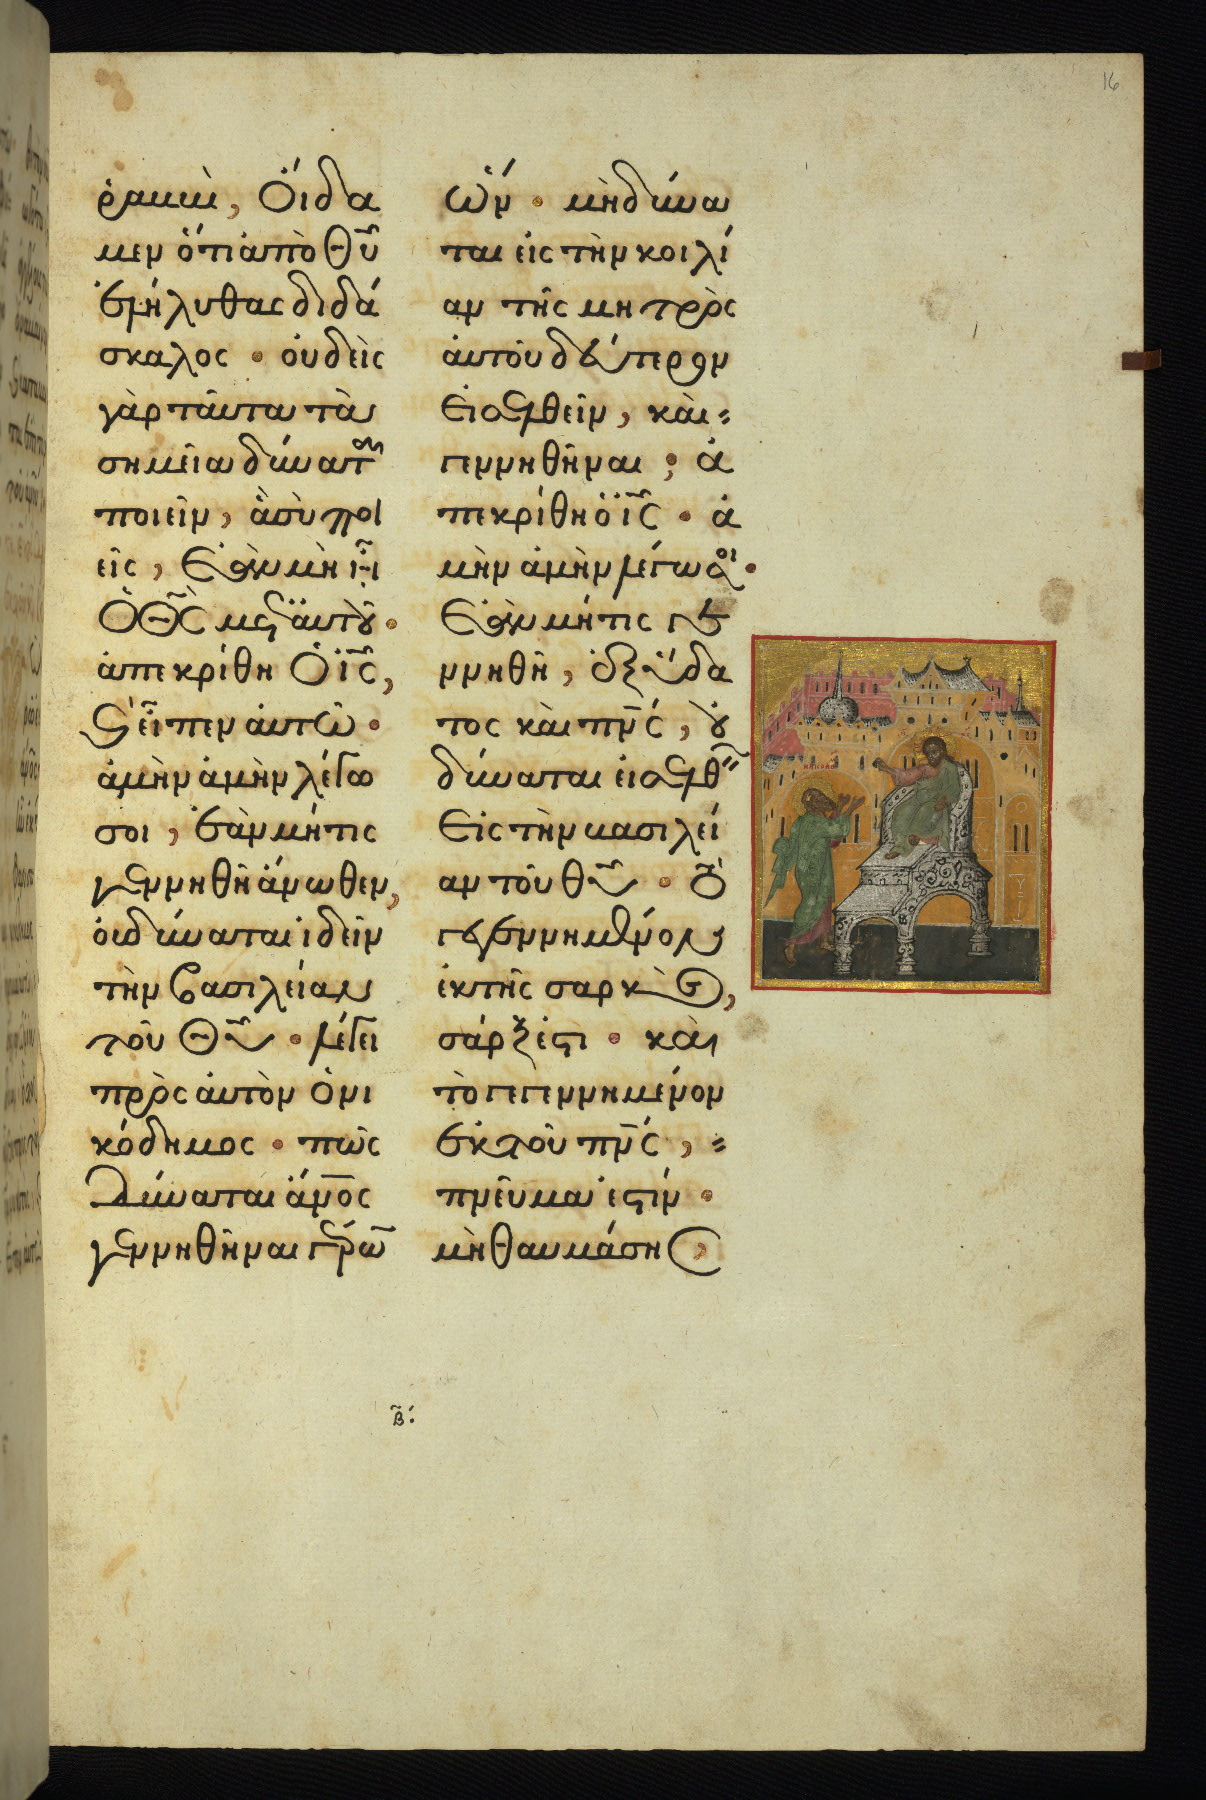 16
ῥαββὶ, Ὀίδα
μεν ὅτι ἀπὸ Θῦ
ἐλήλυθας διδά
σκαλος · ὀυδεὶς
γὰρ ταῦτα τὰ
σημεῖα δύναται
ποιεῖν, ἃ σὺ ποι
εῖς, Ἐὰν μὴ ἦ
Ὁ Θς̃ μετ' ἀυτοῦ ·
ἀπεκρίθη Ὁ ἰς̃,
ϗ εἶπεν ἀυτῶ ·
ἀμὴν ἀμὴν λέγω
σοι, ἐὰν μήτις
γεννηθῆ ἄνωθεν,
ὀυ δύναται ἰδεῖν
τὴν βασιλείαν
τοῦ Θῦ · λέγει
πρὸς ἀυτὸν Ὁ νι
κόδημος · πῶς
Δύναται ἄνο̄ς
γεννηθῆναι γέρω̄
Ὢν · μὴ δύνα
ται εἰς τὴν κοιλί
αν τῆς μητρὸς
ἀυτοῦ δεύτερον
Ἐισελθεῖν, κὰι
γεννηθῆναι ; ἀ
πεκρίθη ὁ ἰς̃ · ἀ
μὴν ἀμὴν λέγω σοι ·
Ἐὰν μήτις γε
ννηθῆ, ἐξ ὕδα
τος κὰι πν̄ς, ὀυ
δύναται εἰσελθεῖν
Ἐις τὴν βασιλεί
αν τοῦ θῦ · Τὸ
γεγεννημένον
ἐκ τῆς σαρκὸς,
σάρξ ἐστι · κὰι
τὸ γεγεννημένον
ἐκ τοῦ πν̄ς,
πνεῦμα ἐστίν ·
μὴ θαυμάσης,
β: